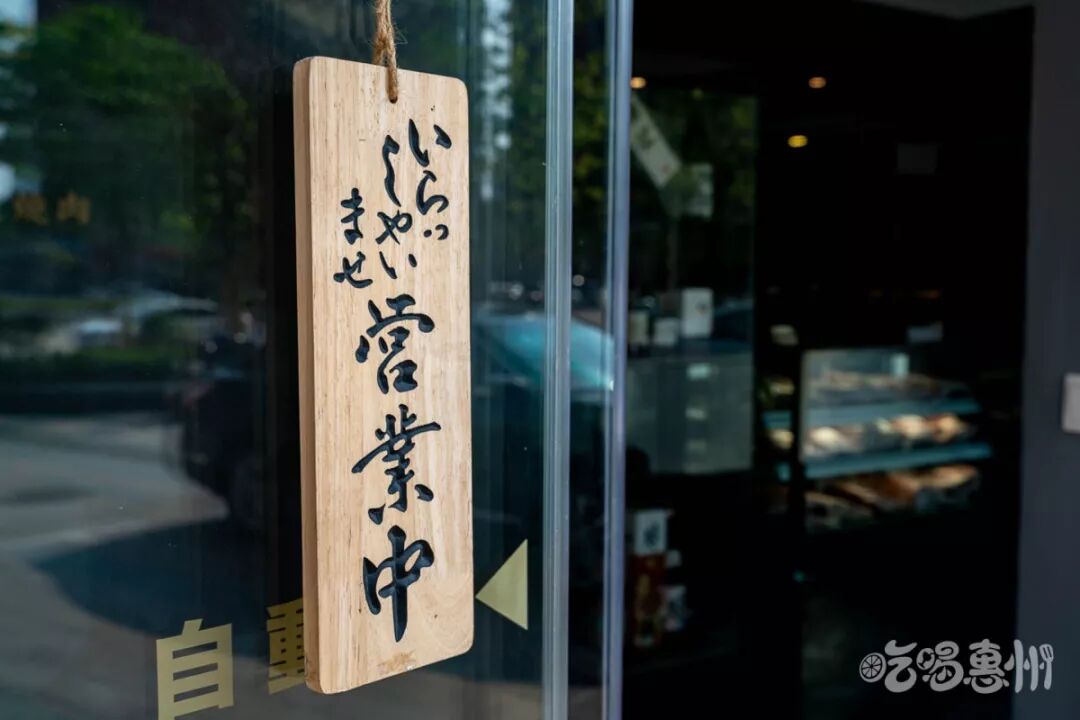 いらっ
しゃい
ませ
営業中
自動
焼肉
吃喝惠州